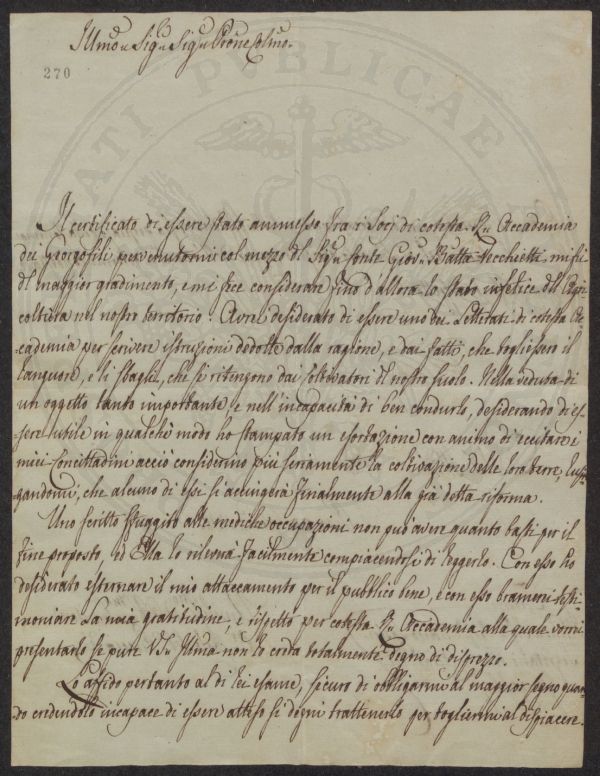 Illmo Sigr Sigr Prone Colmo
270
ATI PVBLICAE
Il certificato di essere stato ammesso fra i Socj di cotesta Rl Accademia
dei Georgofili pervenutomi col mezzo del Sigr Conte Giovn Batta Vecchietti mi fù
di maggior gradimento, e mi fece considerare fino d'allora lo stato infelice dell'Agri-
coltura nel nostro territorio. Avrei desiderato di essere uno dei Letterati di cotesta Ac-
cademia per scrivere istruzioni dedotte dalla ragione, e dai fatti, che togliessero il
languore, e li sbaglj, che si ritengono dai Coltivatori del nostro suolo. Nella veduta di
un oggetto tanto importante, e nell'incapacità di ben condurlo, desiderando di es-
sere utile in qualche modo ho stampato un esortazione con animo di eccitare i
miei Concittadini acciò considerino più seriamente la coltivazione delle loro terre, lusin-
gandomi, che alcuno di essi si accingerà finalmente alla già detta riforma.
Uno scritto fuggito alle mediche occupazioni non può avere quanto basti per il
fine proposto ed Ella lo rileverà facilmente compiacendosi di leggerlo. Con esso ho
desiderato esternare il mio attaccamento per il pubblico bene, e con esso bramerei testi-
moniare la mia gratitudine, e rispetto per cotesta Rl Accademia alla quale vorrei
presentarlo se pure VS. Illma non lo creda totalmente degno di disprezzo.
Lo affido pertanto al di lei esame, sicuro di obbligarmi al maggior segno quan-
do credendolo incapace di essere atteso si degni trattenerlo per togliermi al dispiacere.